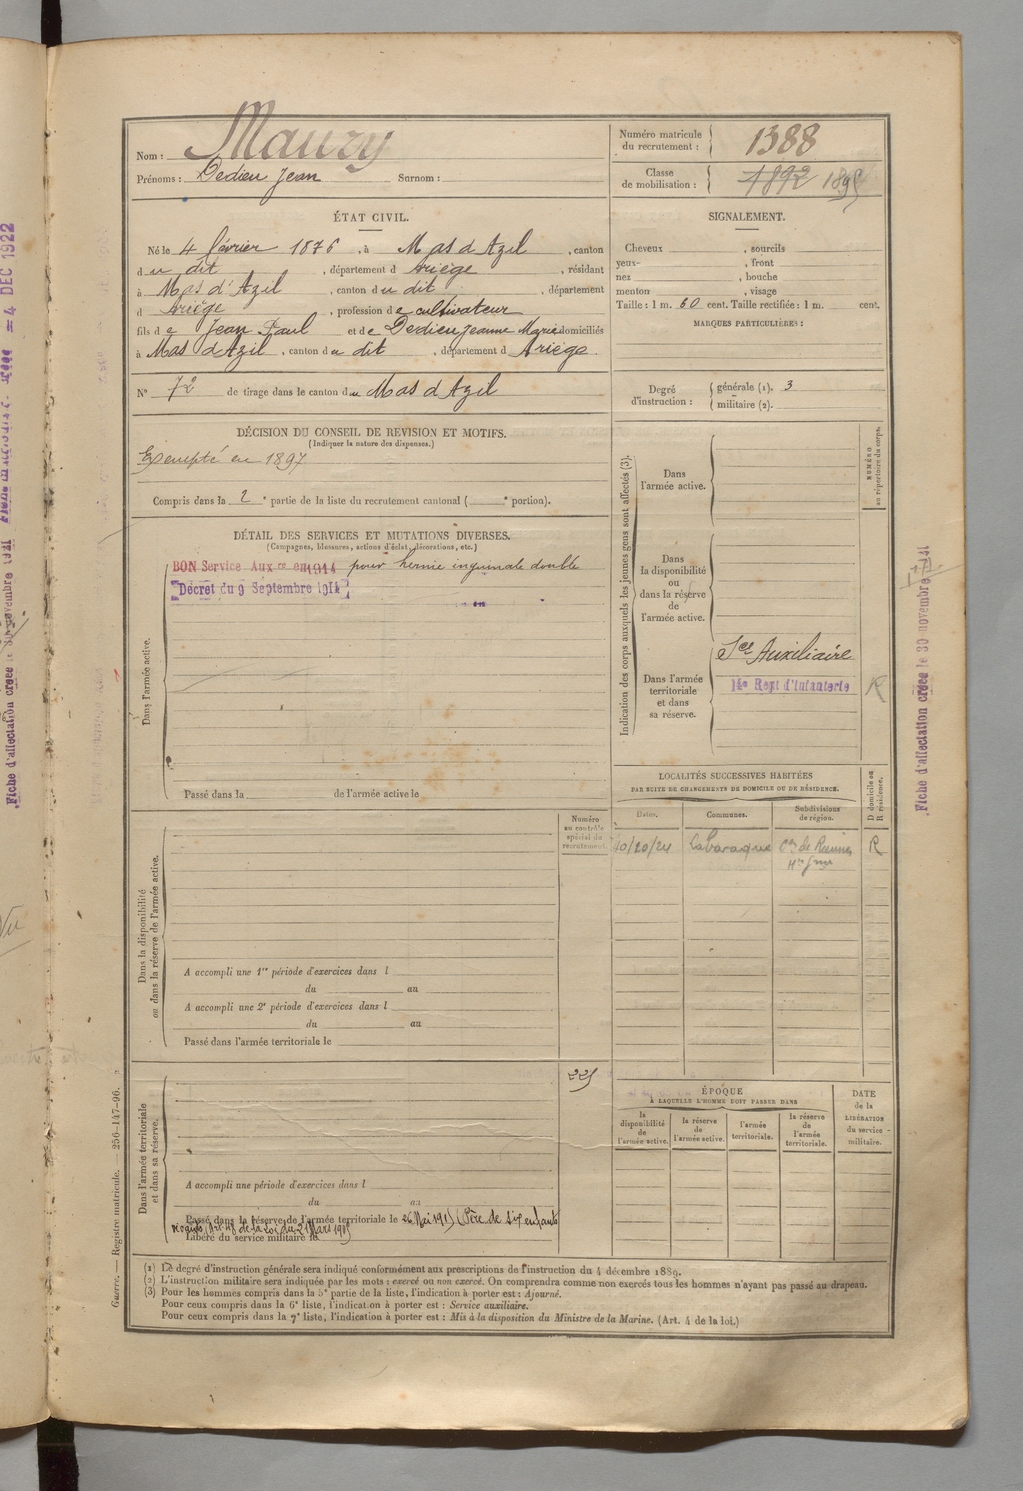 Nom : Maury
Prénoms : Dedieu Jean Surnom :
Numéro matricule du recrutement : 1388
Classe de mobilisation : 1892 1895
ÉTAT CIVIL.
Né le 4 février 1876, à Mas d'Azil, canton
du dit, département d Ariège, résidant
à Mas d'Azil, canton du dit, département
d Ariège, profession de cultivateur
fils de Jean Paul et de Dedieu Jeanne Marie domiciliés
à Mas d'Azil, canton du dit, département d Ariège.
N° 72 de tirage dans le canton du Mas d'Azil
SIGNALEMENT.
Cheveux , sourcils
yeux , front
nez , bouche
menton , visage
Taille : 1 m. 60 cent. Taille rectifiée : 1 m. cent.
MARQUES PARTICULIÈRES :
Degré d'instruction : générale (1). 3
militaire (2).
DÉCISION DU CONSEIL DE REVISION ET MOTIFS.
(Indiquer la nature des dispenses.)
Exempté en 1897
Compris dans la 2e partie de la liste du recrutement cantonal ( e portion).
DÉTAIL DES SERVICES ET MUTATIONS DIVERSES.
(Campagnes, blessures, actions d'éclat, décorations, etc.)
BON Service Auxre en 1914 pour hernie inguinale double
Décret du 9 Septembre 1914
Dans l'armée active.
Passé dans la de l'armée active le
Indication des corps auxquels les jeunes gens sont affectés (3).
NUMÉRO au répertoire du corps.
Dans l'armée active.
Dans la disponibilité ou dans la réserve de l'armée active.
Dans l'armée territoriale et dans sa réserve.
Sce Auxiliaire
14e Regt d'Infanterie R
LOCALITÉS SUCCESSIVES HABITÉES
PAR SUITE DE CHANGEMENTS DE DOMICILE OU DE RÉSIDENCE.
Dates. Communes. Subdivisions de région. D domicile ou R résidence.
10/20/24 Labaraque R
Numéro au contrôle spécial du recrutement.
Dans la disponibilité ou dans la réserve de l'armée active.
A accompli une 1re période d'exercices dans l
du au
A accompli une 2e période d'exercices dans l
du au
Passé dans l'armée territoriale le
225
Dans l'armée territoriale et dans sa réserve.
A accompli une période d'exercices dans l
du au
Passé dans la réserve de l'armée territoriale le 26 Mai 1915 (Père de six enfants
Art. 48 de la Loi du 21 Mars 1905
Libéré du service militaire le
ÉPOQUE
A LAQUELLE L'HOMME DOIT PASSER DANS
la disponibilité de l'armée active. la réserve de l'armée active. l'armée territoriale. la réserve de l'armée territoriale.
DATE de la LIBÉRATION du service militaire.
(1) Le degré d'instruction générale sera indiqué conformément aux prescriptions de l'instruction du 4 décembre 1889.
(2) L'instruction militaire sera indiquée par les mots : exercé ou non exercé. On comprendra comme non exercés tous les hommes n'ayant pas passé au drapeau.
(3) Pour les hommes compris dans la 5e partie de la liste, l'indication à porter est : Ajourné.
Pour ceux compris dans la 6e liste, l'indication à porter est : Service auxiliaire.
Pour ceux compris dans la 7e liste, l'indication à porter est : Mis à la disposition du Ministre de la Marine. (Art. 4 de la loi.)
Guerre. — Registre matricule. — 256-147-96.
Fiche d'affectation créée le 30 novembre 1921
= 4 DEC 1922
Vu